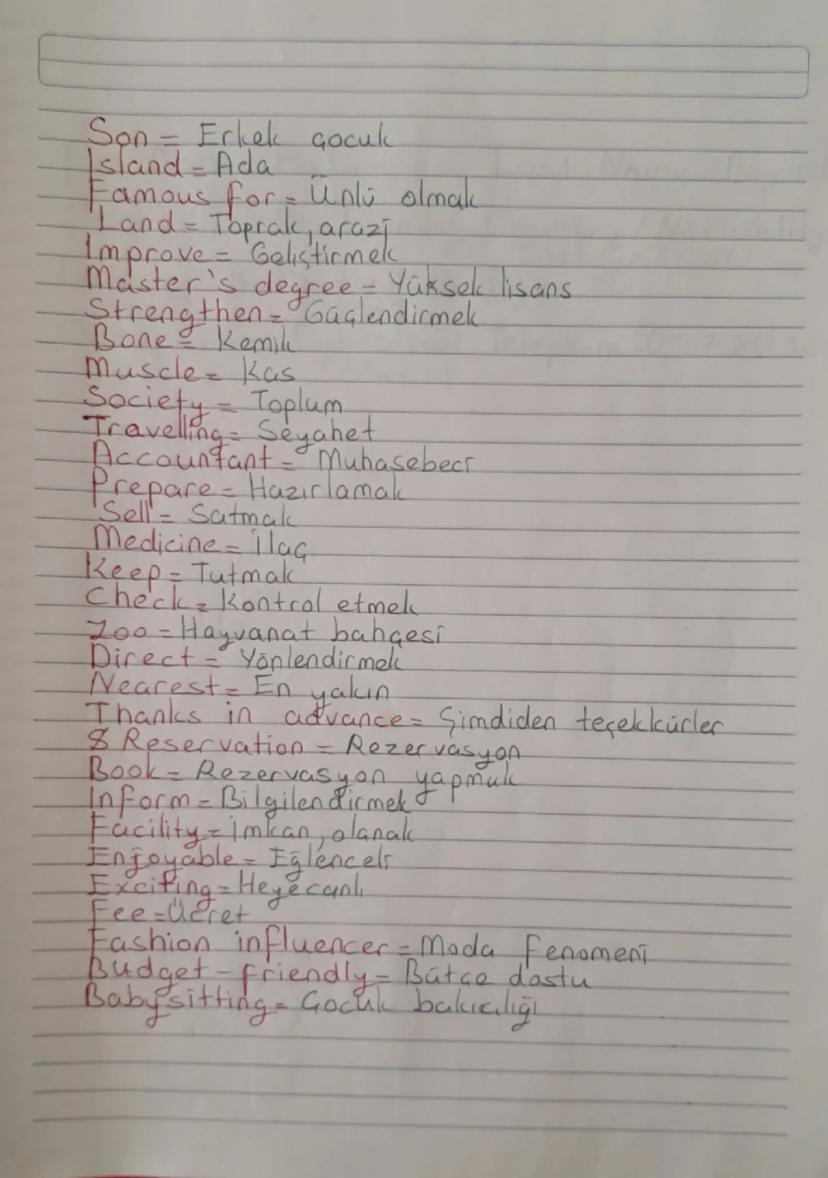 Son = Erkek çocuk
Island = Ada
Famous for = Ünlü olmak
Land = Toprak, arazi
Improve = Geliştirmek
Master's degree = Yüksek lisans
Strengthen = Güçlendirmek
Bone = Kemik
Muscle = Kas
Society = Toplum
Travelling = Seyahet
Accountant = Muhasebeci
Prepare = Hazırlamak
Sell = Satmak
Medicine = İlaç
Keep = Tutmak
Check = Kontrol etmek
Zoo = Hayvanat bahçesi
Direct = Yönlendirmek
Nearest = En yakın
Thanks in advance = Şimdiden teşekkürler
Reservation = Rezervasyon
Book = Rezervasyon yapmak
Inform = Bilgilendirmek
Facility = İmkan, olanak
Enjoyable = Eğlenceli
Exciting = Heyecanlı
Fee = Ücret
Fashion influencer = Moda Fenomeni
Budget - friendly = Bütçe dostu
Babysitting = Çocuk bakıcılığı